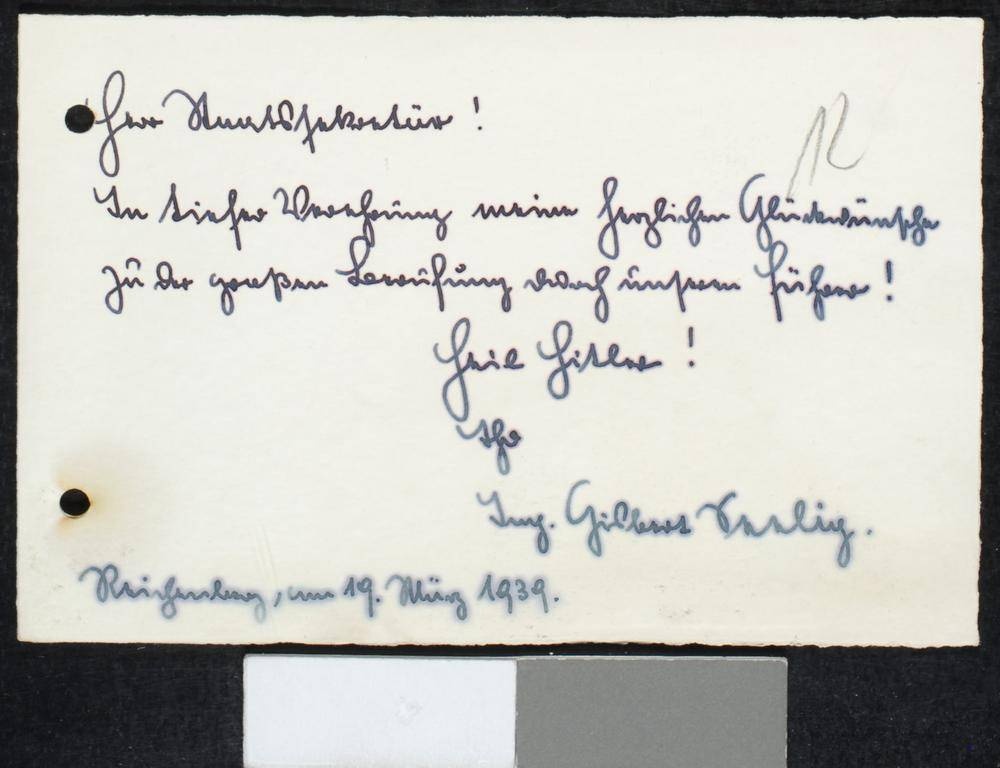 Herr Staatssekretär!
12
In tiefer Verehrung meine herzlichen Glückwünsche
zu der großen Berufung durch unseren Führer!
Heil Hitler!
Ihr
Ing. Gisbert Seelig.
Reichenberg, am 19. März 1939.